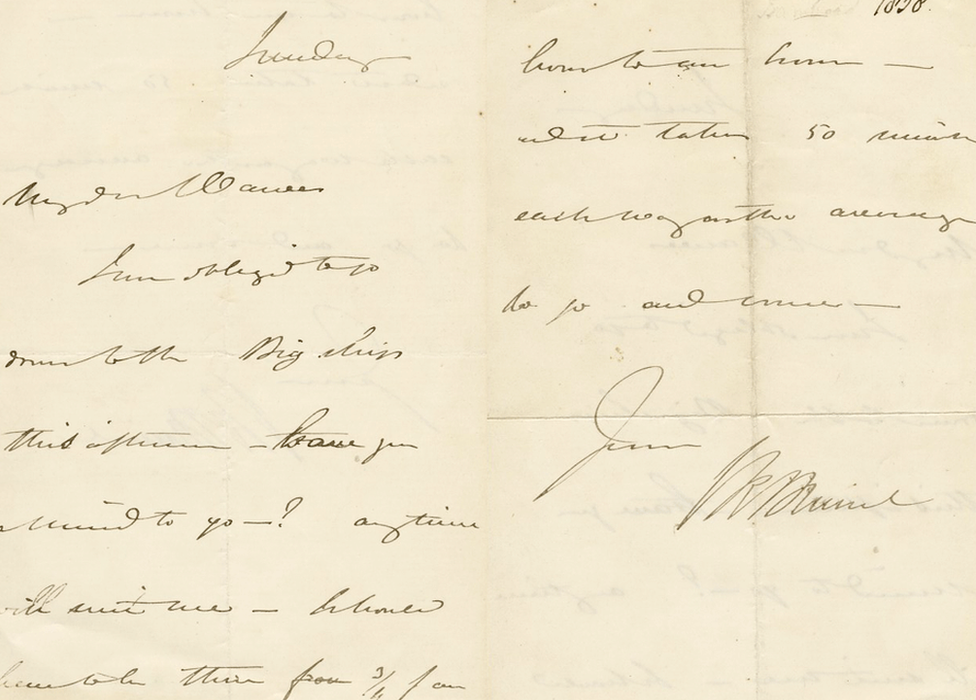 Sunday
My dear
I am obliged to go
down to the Big ship
this afternoon — have you
a mind to go —? anytime
will suit me — I should
have to be there from 3/4 of an
1858.
hour to an hour —
and it takes 50 minutes
each way on the average
to go and come —
Yours
I K Brunel